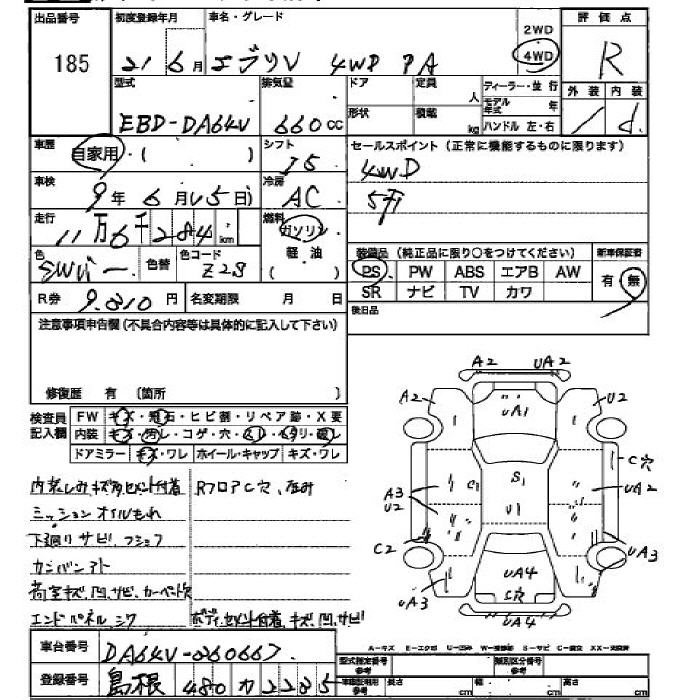 出品番号 185
初度登録年月 21 6月
車名・グレード エブリV 4WD PA
2WD
4WD
評価点 R
外装 内装 / d
型式 EBD-DA64V
排気量 660cc
ドア
定員 人
ディーラー・並行
モデル年式 年
形状
積載 kg
ハンドル 左・右
車歴 自家用・( )
シフト I5
セールスポイント (正常に機能するものに限ります)
4WD
5行
車検 9年6月(15日)
冷房 AC
走行 11万6千284km
燃料 ガソリン
軽油
色 シルバー
色替
色コード Z2S
装備品 (純正品に限り○をつけてください)
PS PW ABS エアB AW
SR ナビ TV カワ
新車保証書
有・無
R券 9.010円
名変期限 月 日
後日品
注意事項申告欄(不具合内容等は具体的に記入して下さい)
修復歴 有 〔箇所 〕
検査員記入欄
FW キズ・飛石・ヒビ割・リペア跡・X要
内装 キズ・汚レ・コゲ・穴・スレ・ヘタリ・破レ
ドアミラー キズ・ワレ ホイール・キャップ キズ・ワレ
内装しみキズ多セメント付着 RフロアC穴、歪み
ミッションオイルもれ
下廻りサビ、フショク
カンバンアト
荷室キズ、凹、サビ、カーペット欠
エンドパネル、シワ ボディ、セメント付着、キズ、凹、サビ
A2 UA2
A2 UA1 U2
C穴
S1
C1
UA2
A3
U2
U1
C2
UA3
UA4
C穴
UA3
UA4
A-キズ E-エクボ U-凹み W-補修跡 S-サビ C-腐食 XX-交換済
車台番号 DA64V-260667
登録番号 島根 480 カ 2235
型式指定番号 参考
類別区分番号 参考
車検証用 参考
長さ cm
幅 cm
高さ cm